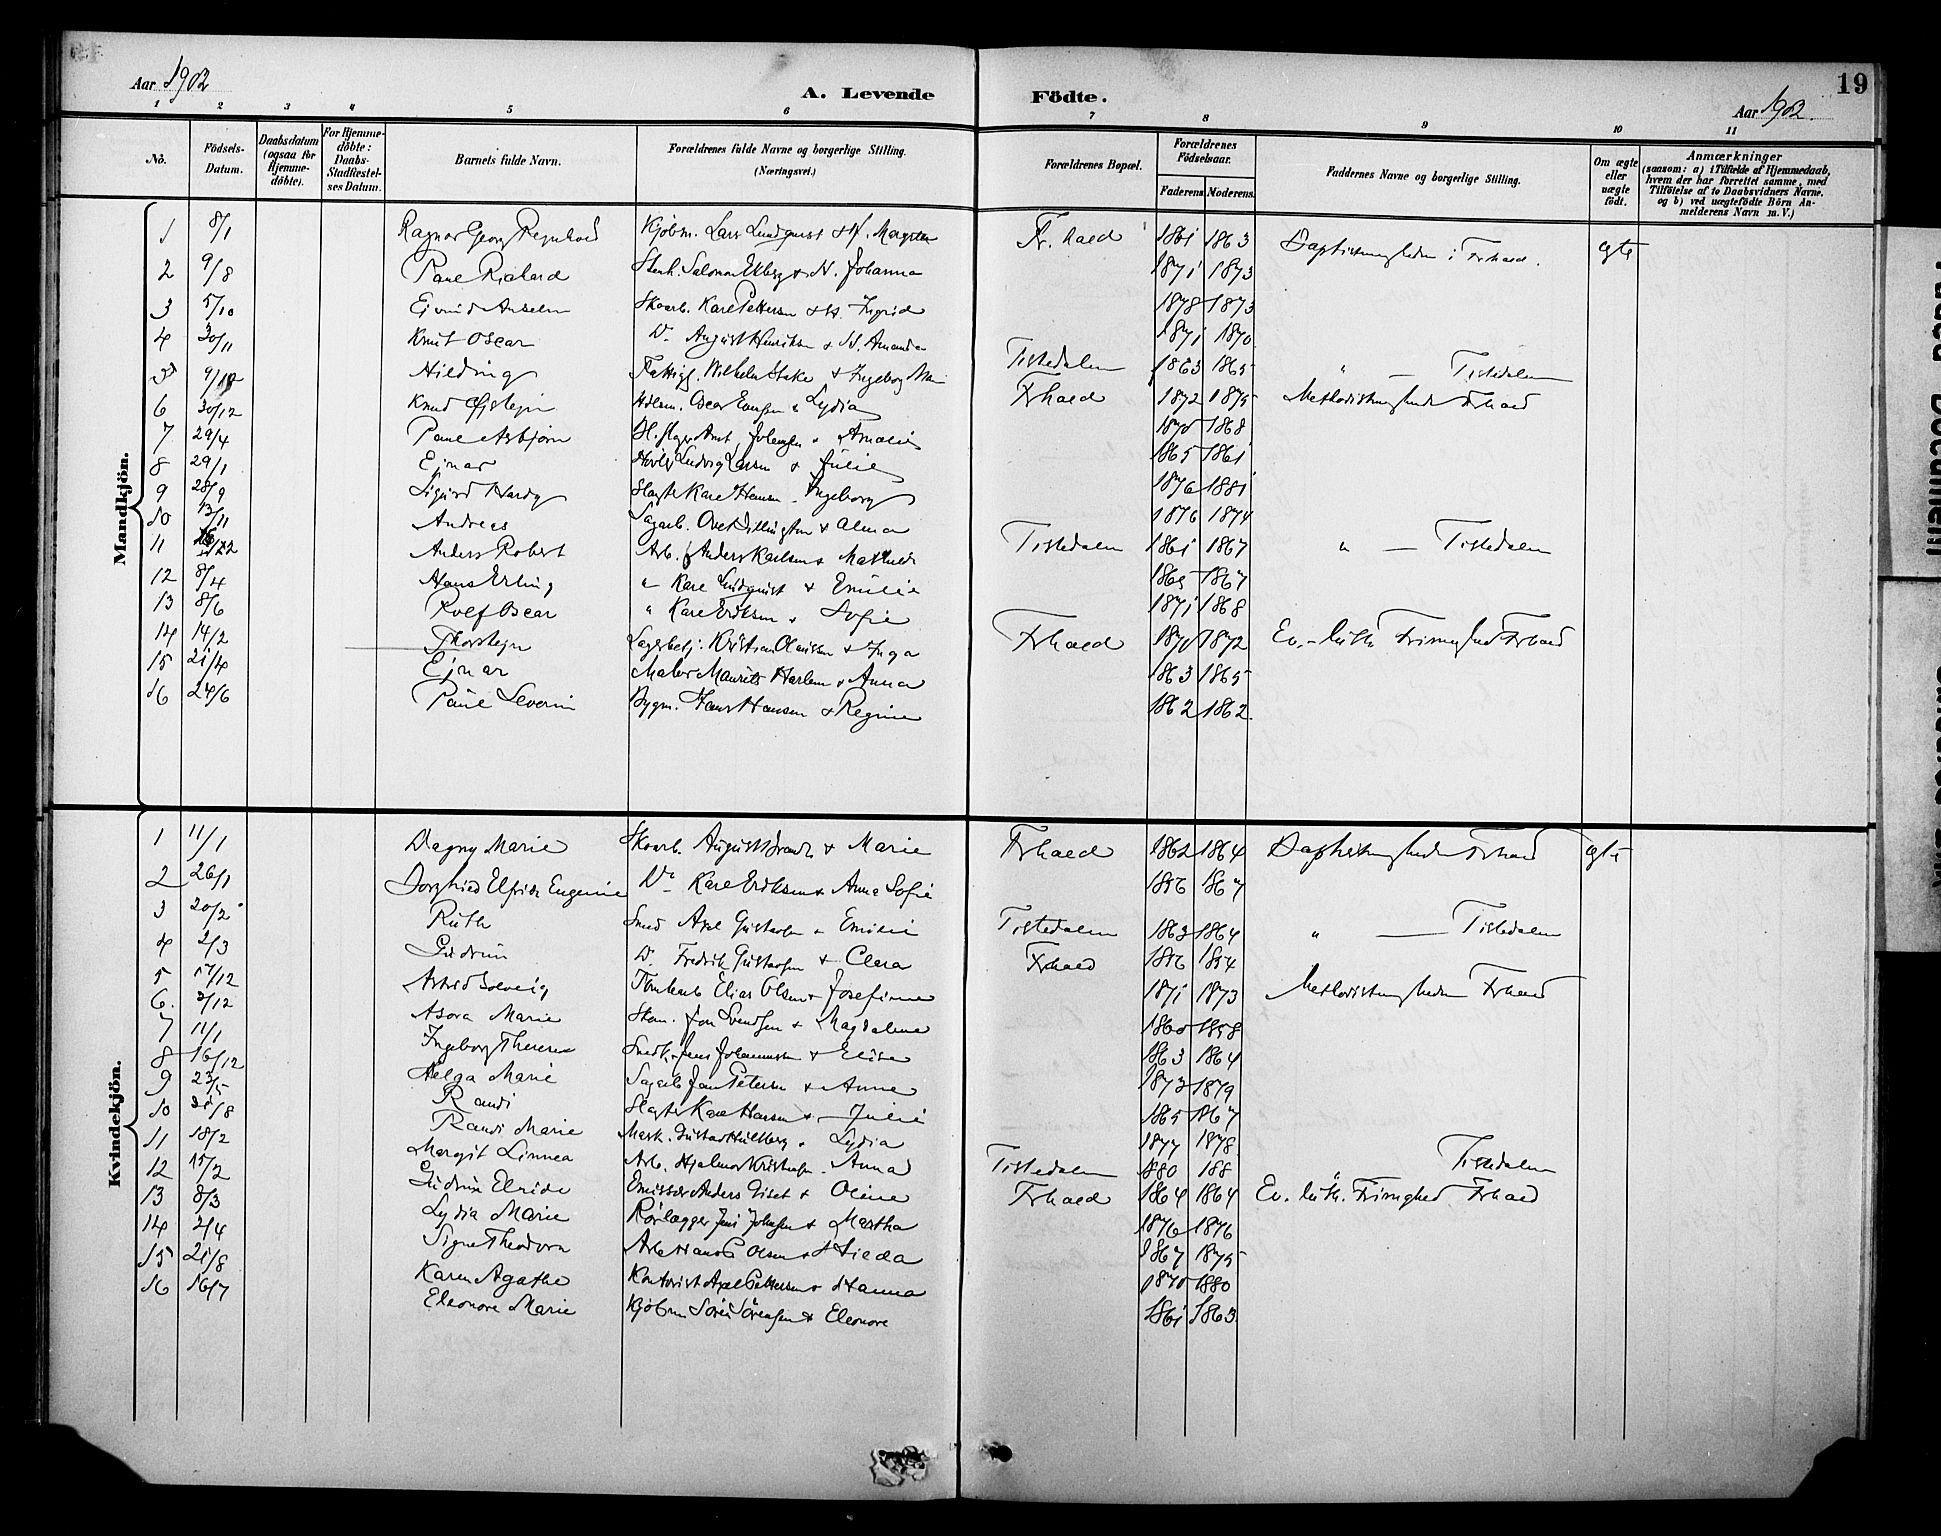 Aar 1902
A. Levende Födte.
19
Aar 1902.
1 2 3 4 5 6 7 8 9 10 11
No.
Födsels-Datum.
Daabsdatum (ogsaa for Hjemme-döbte).
For Hjemme-döbte: Daabs-Stadfæstel-ses Datum.
Barnets fulde Navn.
Forældrenes fulde Navne og borgerlige Stilling. (Næringsvei.)
Forældrenes Bopæl.
Forældrenes Födselsaar.
Faderens. Moderens.
Faddernes Navne og borgerlige Stilling.
Om ægte eller uægte födt.
Anmærkninger (saasom: a) i Tilfælde af Hjemmedaab, hvem der har forrettet samme, med Tilföielse af to Daabsvidners Navne, og b) ved uægtefödte Börn An-melderens Navn m. V.)
Mandkjön.
1 8/1 Ragnar Georg Reynhold Kjöbm. Lars Lundquist & H. Fr.hald 1861 1863 Baptistmenigheden i Frhald. ægte
2 9/8 Paul Richard Stenh. Salomon Ekberg & H. Johanna 1871 1873
3 5/10 Ejvind Anselm Skoarb. Karl Pettersen & H. Ingrid 1878 1873
4 30/11 Knut Oscar Do August Henriksen & H. Amanda 1871 1870
5 Hilding Wilhelm Stake & Ingeborg Tistedalen 1863 1865 " — Tistedalen
6 30/12 Knud Øistejn Oscar & Lydia Frhald 1872 1875 Methodistmenigheden Frhald
7 29/4 Paul Asbjörn & Amalie 1870 1868
8 29/1 Ejnar Ludvig Larsen & Julie 1865 1861
9 28/9 Sigurd Hardy Slagter Karl Hansen Ingeborg 1876 1881
10 13/11 Andreas Sagarb. & Alma 1876 1874
11 Anders Robert Arb. Anders Karlsen & Mathilde Tistedalen 1861 1867 " — Tistedalen
12 8/4 Hans Erling " Karl Lindquist & Emilie 1865 1867
13 8/6 Rolf Oscar " Karl Eriksen & Sofie 1871 1868
14 14/2 Thorstejn Lagerbetj. Kristian Olaussen & Inga Frhald 1870 1872 Ev.-luth. Frimenighed Frhald
15 21/4 Ejnar Maler Maurits Harlem & Anna 1863 1865
16 24/6 Paul Severin Bygm. Hans Hansen & Regine 1862 1862.
Kvindekjön.
1 11/1 Dagny Marie Skoarb. August Brandt & Marie Frhald 1862 1864 Baptistmenigheden Frhald ægte
2 26/1 Borghild Elfrida Eugenie Do Karl Eriksen & Anna Sofie 1856 1867
3 20/2 Ruth Smed Axel Gustavsen & Emilie Tistedalen 1863 1864 " — Tistedalen
4 2/3 Gudrun Do Fredrik Gustavsen & Clara Frhald 1856 1854
5 17/12 Astrid Solveig Elias Olsen & Josefine 1871 1873 Methodistmenigheden Frhald
6. 3/12 Asora Marie Skom. Jon Svendsen & Magdalene 1860 1858
7 11/1 Ingeborg Therese Snedk. Jens Johannessen & Elise 1863 1864
8 16/12 Helga Marie Sagarb. Petersen & Anne 1873 1879
9 23/5 Randi Slagter Karl Hansen & Julie 1865 1867
10 Randi Marie Mask. Gustav Hultberg & Lydia 1877 1878
11 18/2 Margit Linnea Arb. Hjalmar Kristofersen Anna Tistedalen 1880 188 " Tistedalen
12 15/2 Gudrun Elride Emissær Anders & Oline Frhald 1864 1864 Ev. luth. Frimenighed Frhald
13 8/3 Lydia Marie Rörlægger Jens Johansen & Martha 1876 1876
14 2/4 Signe Theodora Arb Hans P Olsen & Hilda 1867 1875
15 21/8 Karen Agathe Kontorist Axel Pettersen & Hanna 1870 1880
16 16/7 Eleonore Marie Kjöbm Sören Sörensen & Eleonore 1861 1863